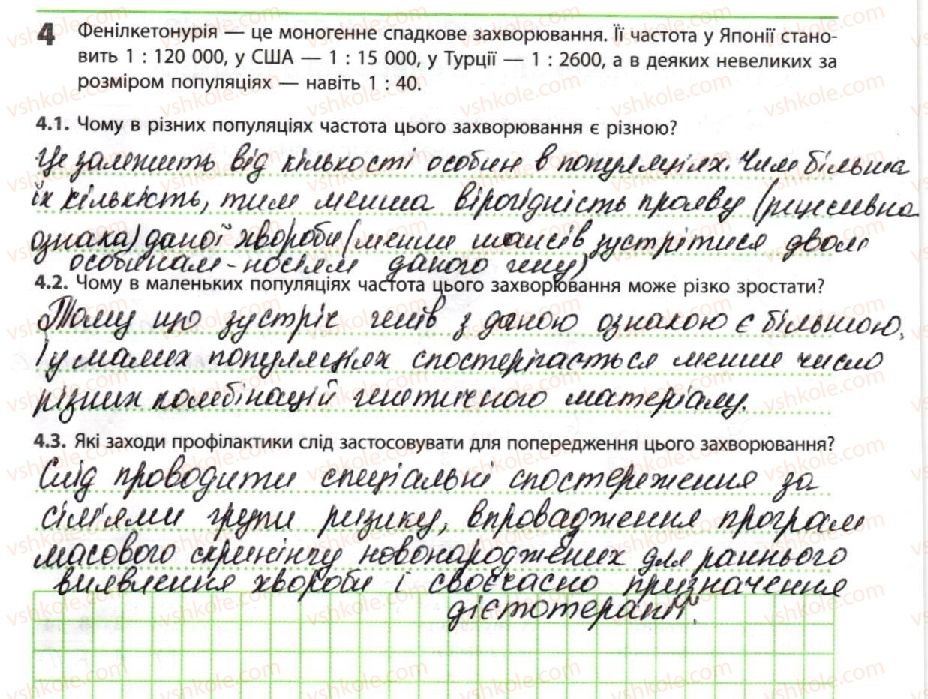 4 Фенілкетонурія — це моногенне спадкове захворювання. Її частота у Японії стано-
вить 1 : 120 000, у США — 1 : 15 000, у Турції — 1 : 2600, а в деяких невеликих за
розміром популяціях — навіть 1 : 40.
4.1. Чому в різних популяціях частота цього захворювання є різною?
Це залежить від кількості особин в популяціях. Чим більша
їх кількість, тим менша вірогідність прояву (рецесивна
ознака) даної хвороби (менше шансів зустрітися двом
особинам-носіям даного гену)
4.2. Чому в маленьких популяціях частота цього захворювання може різко зростати?
Тому що зустріч генів з даною ознакою є більшою,
і у малих популяціях спостерігається менше число
різних комбінацій генетичного матеріалу.
4.3. Які заходи профілактики слід застосовувати для попередження цього захворювання?
Слід проводити спеціальні спостереження за
сім'ями групи ризику, впровадження програм
масового скринінгу новонароджених для раннього
виявлення хвороби і своєчасно призначення
дієтотерапії.